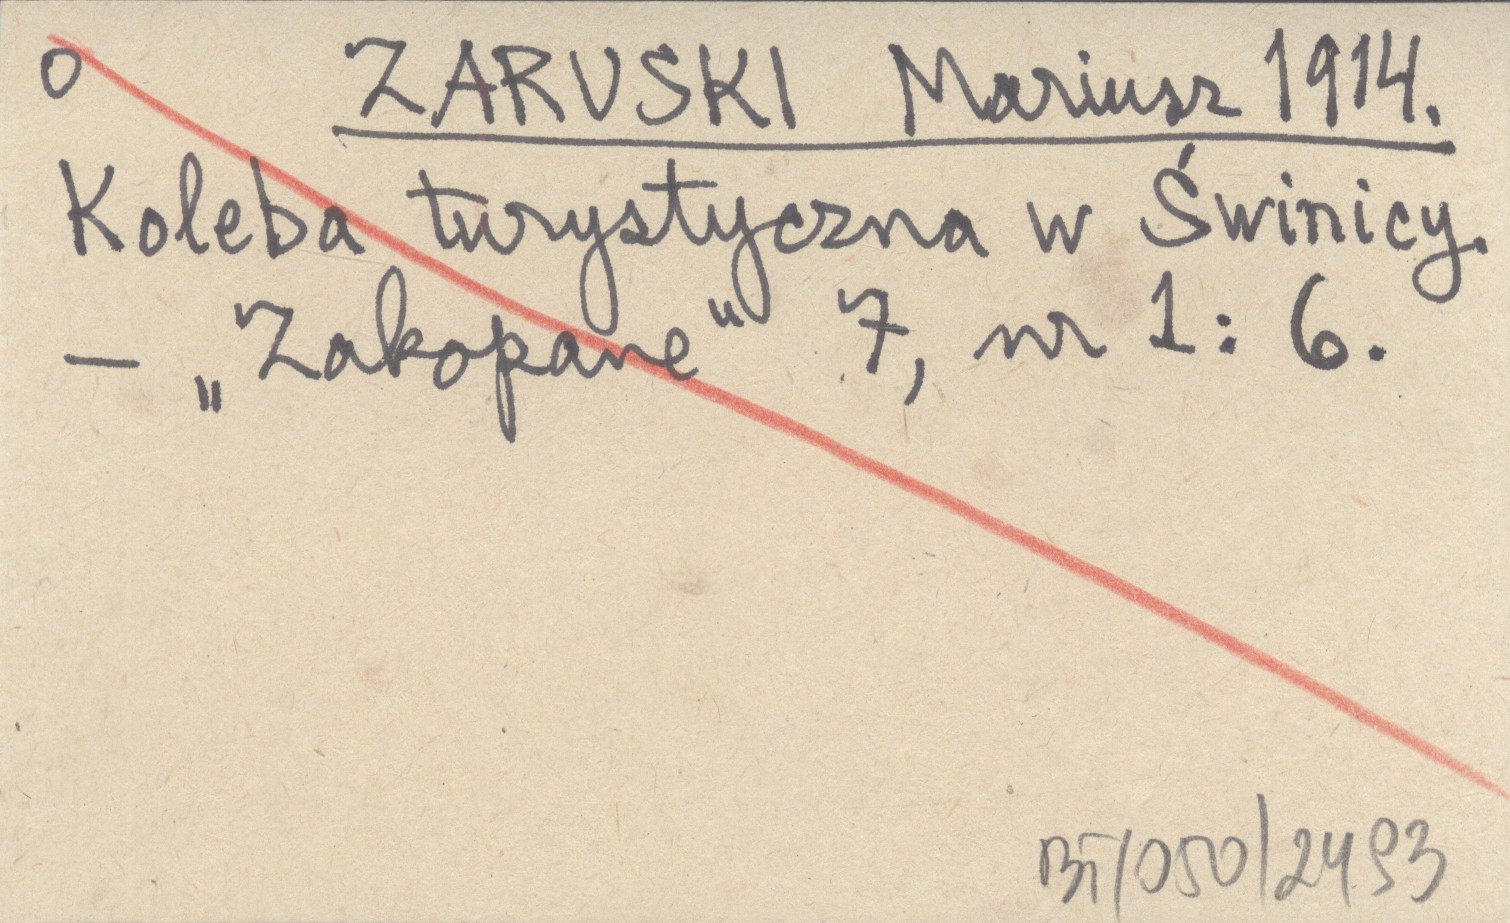 o ZARUSKI Mariusz 1914.
Koleba turystyczna w Świnicy.
— „Zakopane" 7, nr 1: 6.
BT/050/2493